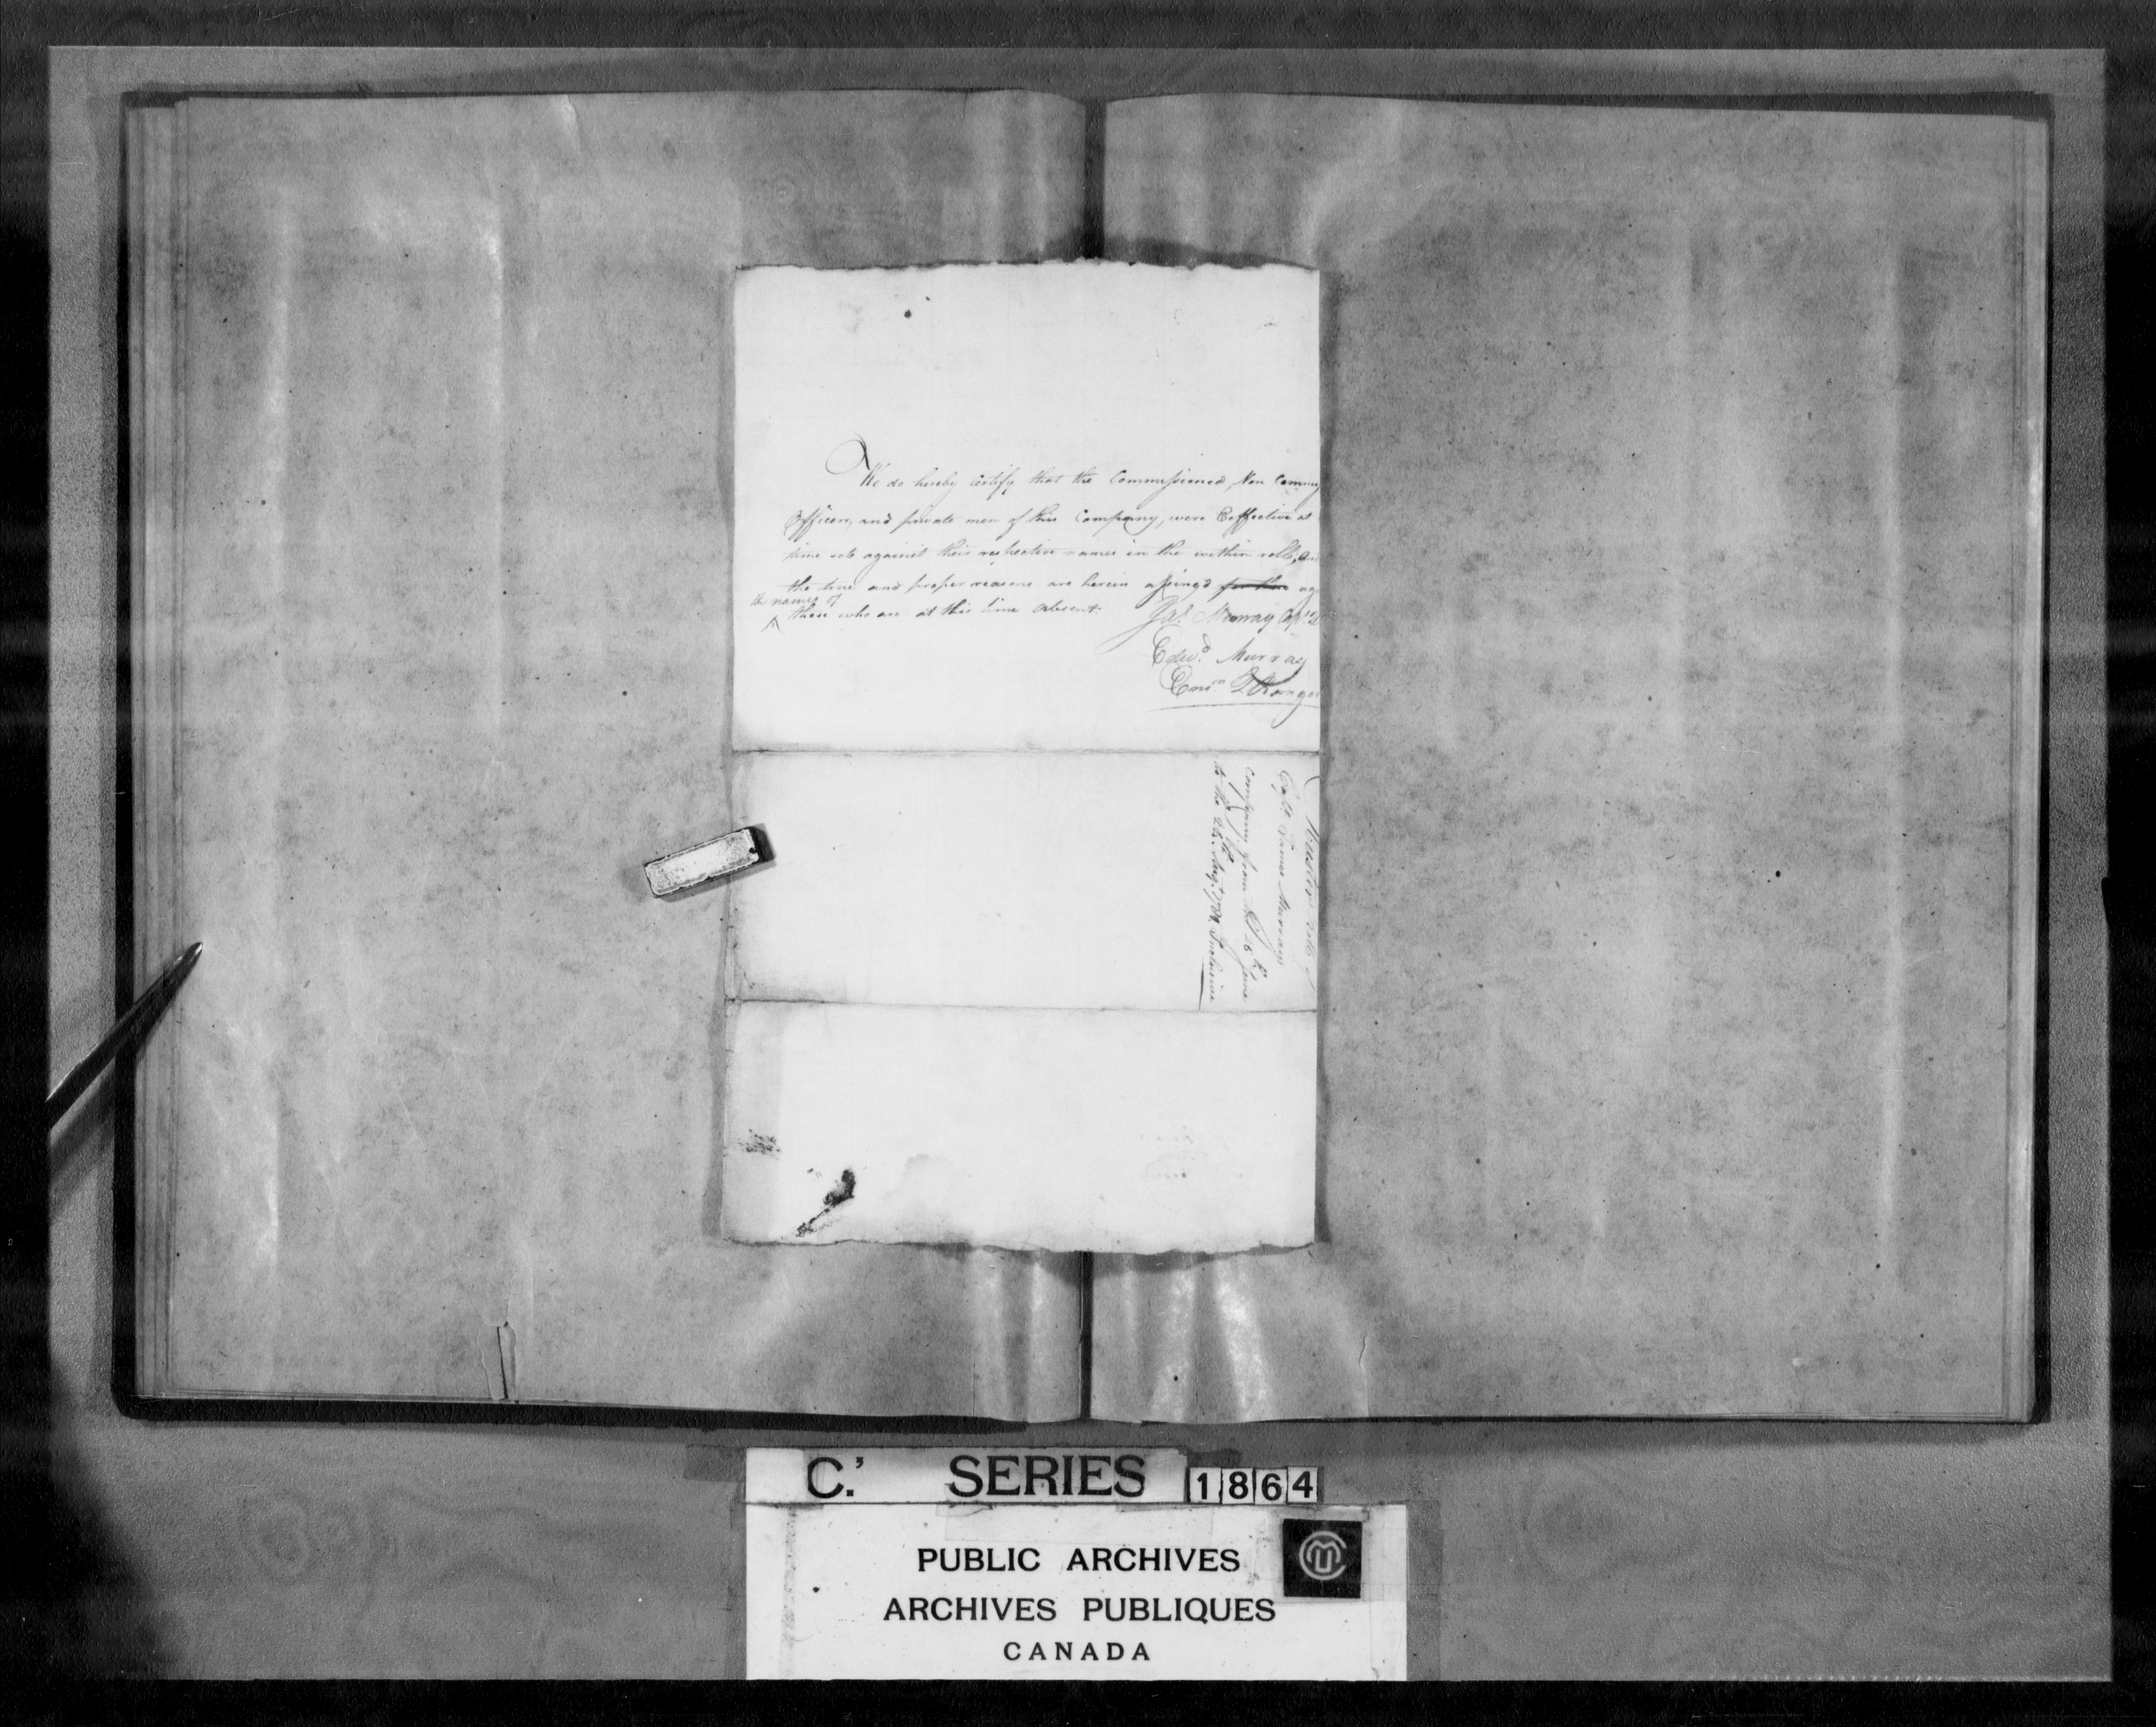 We do hereby certify that the Commissioned, Non Commy
Officers, and private men of this Company, were Effective at
time sets against their respective names in the within rolls, an
the true and proper reasons are herein assing'd for their ag
the names of
those who are at this time absent.
Jas. Murray Capt.
Edwd. Murray
Ensn. Q Ranger
Muster role of
Capt. James Murrays
Company from the 25th June
to the 24th Augt. Inclusive
C. SERIES 1864
PUBLIC ARCHIVES
ARCHIVES PUBLIQUES
CANADA